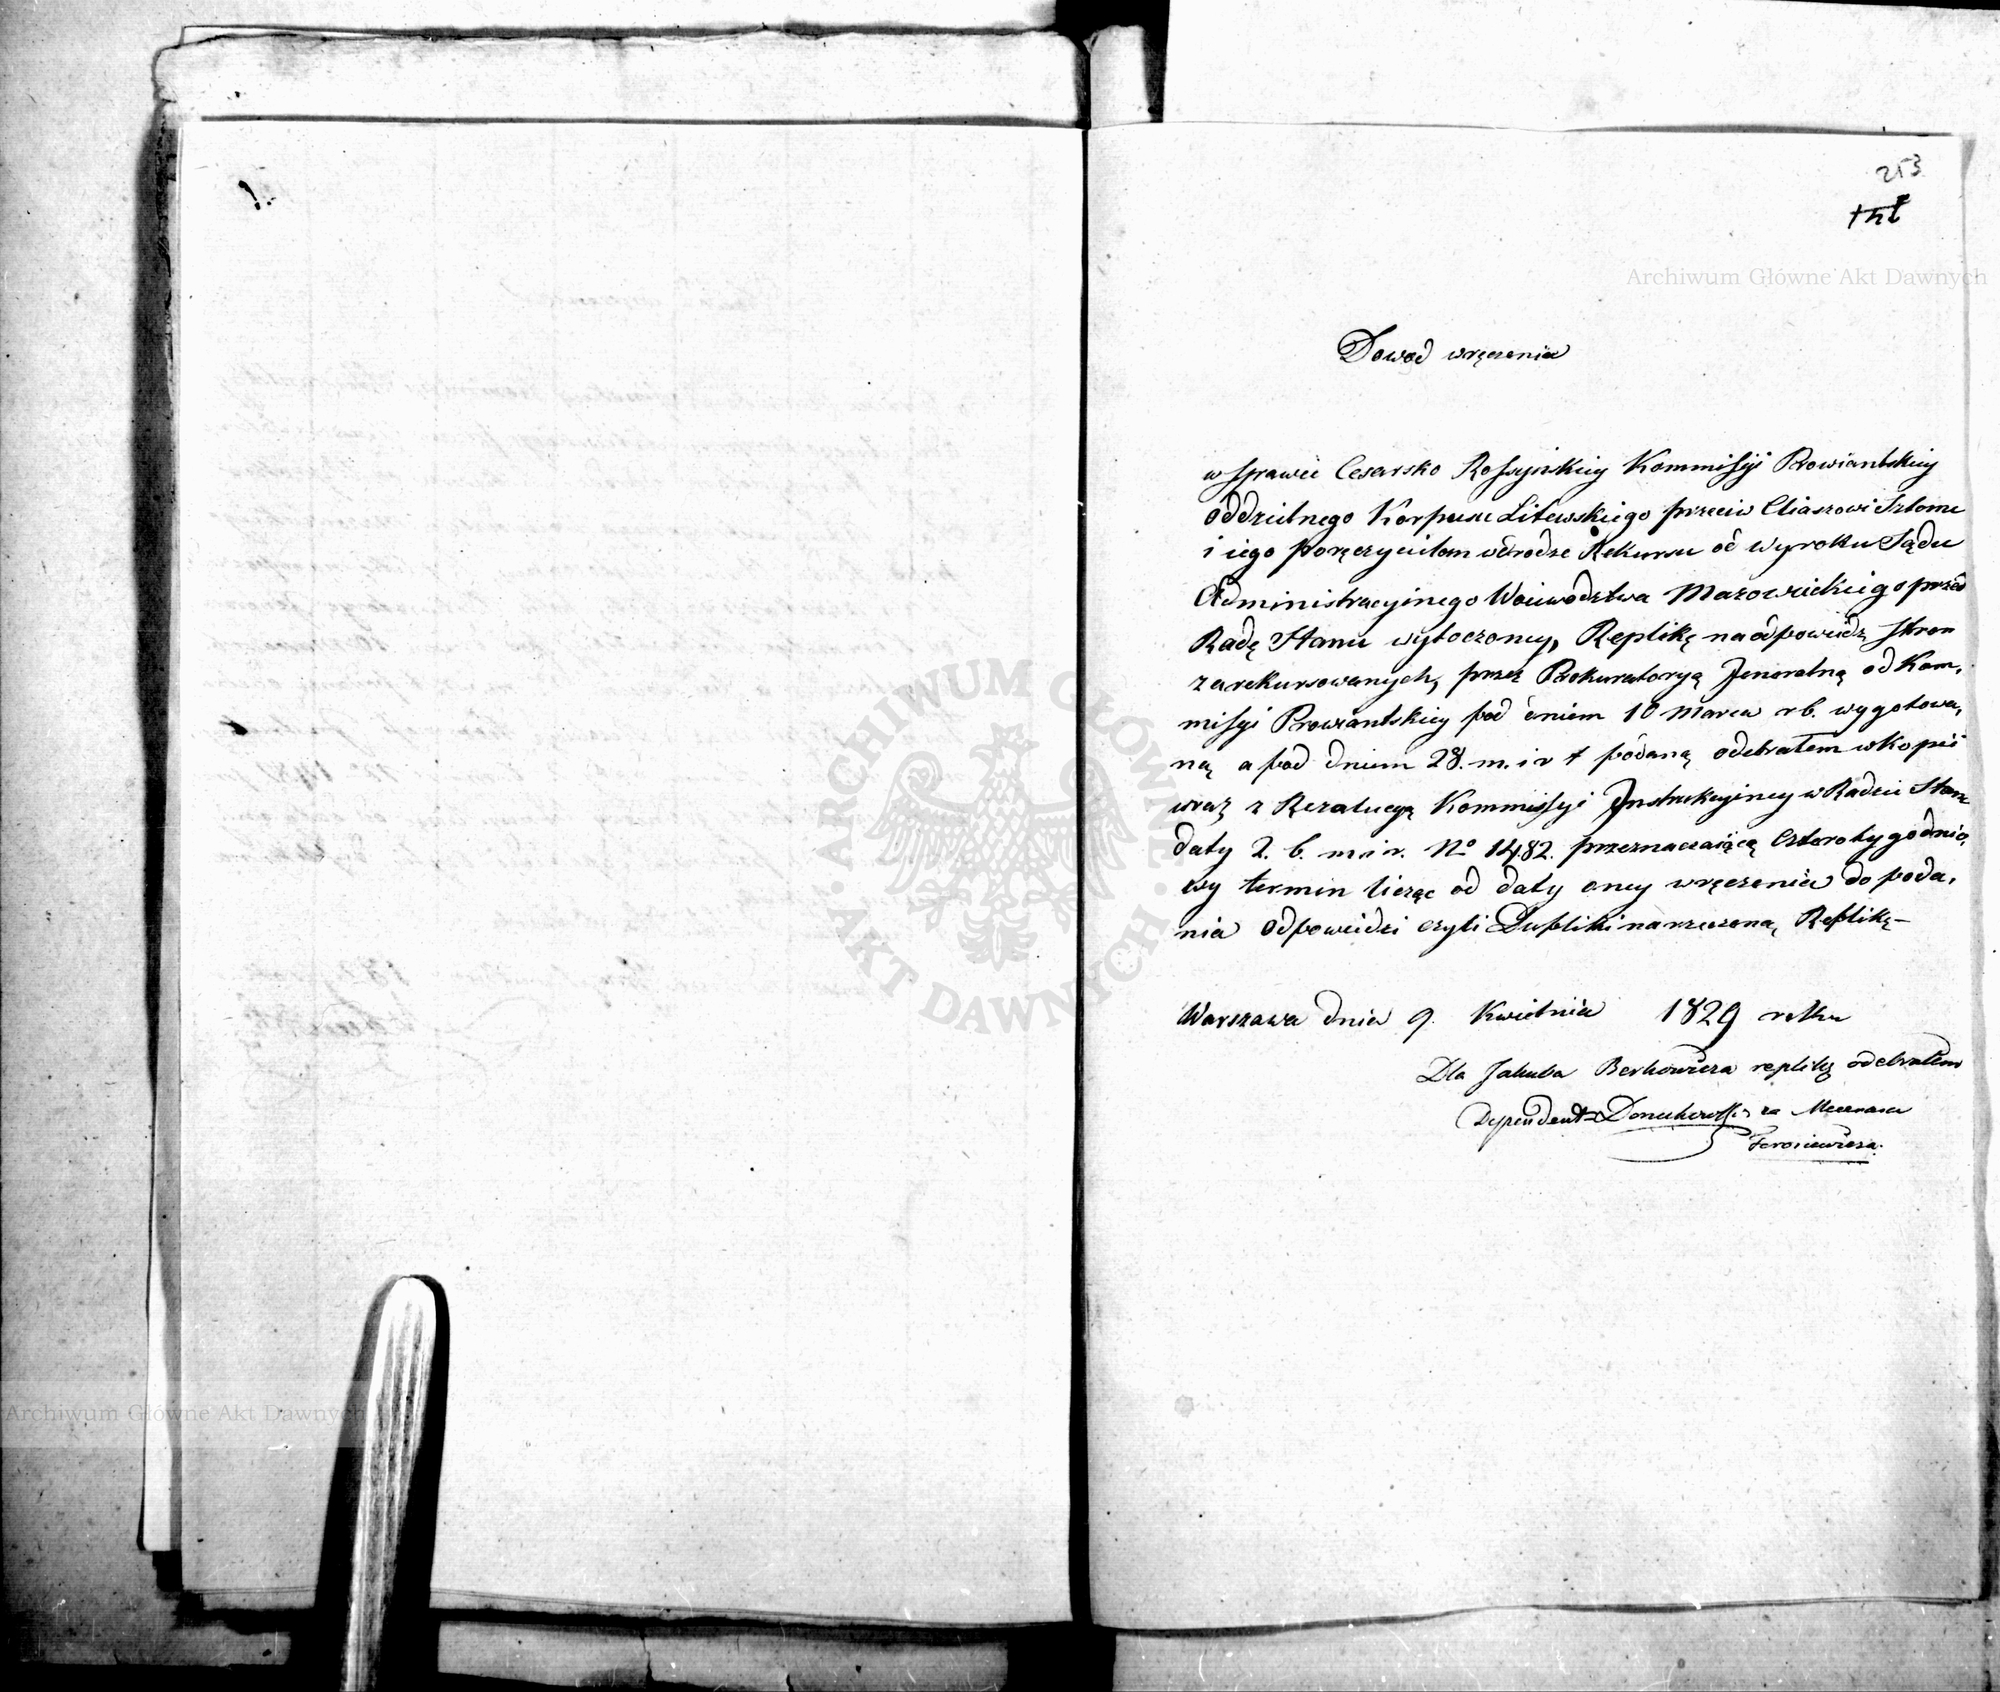 253
Archiwum Główne Akt Dawnych
Dowod wręczenia
w sprawie Cesarsko Rossyiskiey Kommissyi Prowiantskiey
oddzielnego Korpusu Litewskiego przeciw Eliaszowi Szlome
i iego poręczycielom w drodze Rekursu od wyroku Sądu
Administracyinego Woiewodztwa Mazowieckiego przed
Radę Stanu wytoczoney, Replikę na odpowiedz stron
zarekursowanych, przez Prokuratoryą Jeneralną od Kom,
missyi Prowiantskiey pod dniem 10 Marca r b. wygotowa,
ną a pod dniem 28. m. i r t podaną odebrałem w kopii
wraz z Rezolucyą Kommissyi Instrukcyiney w Radzie Stanu
daty 2. b. m i r. No 1482. przeznaczaiącą czterotygodnio,
wy termin licząc od daty oney wręczenia do poda,
nia odpowiedzi czyli Dupliki na rzeczoną Replikę —
Warszawa dnia 9. Kwietnia 1829 roku
Dla Jakuba Berkowicza replikę odebrałem
Dependent za Mecenasa
ARCHIWUM GŁÓWNE AKT DAWNYCH
Archiwum Główne Akt Dawnych